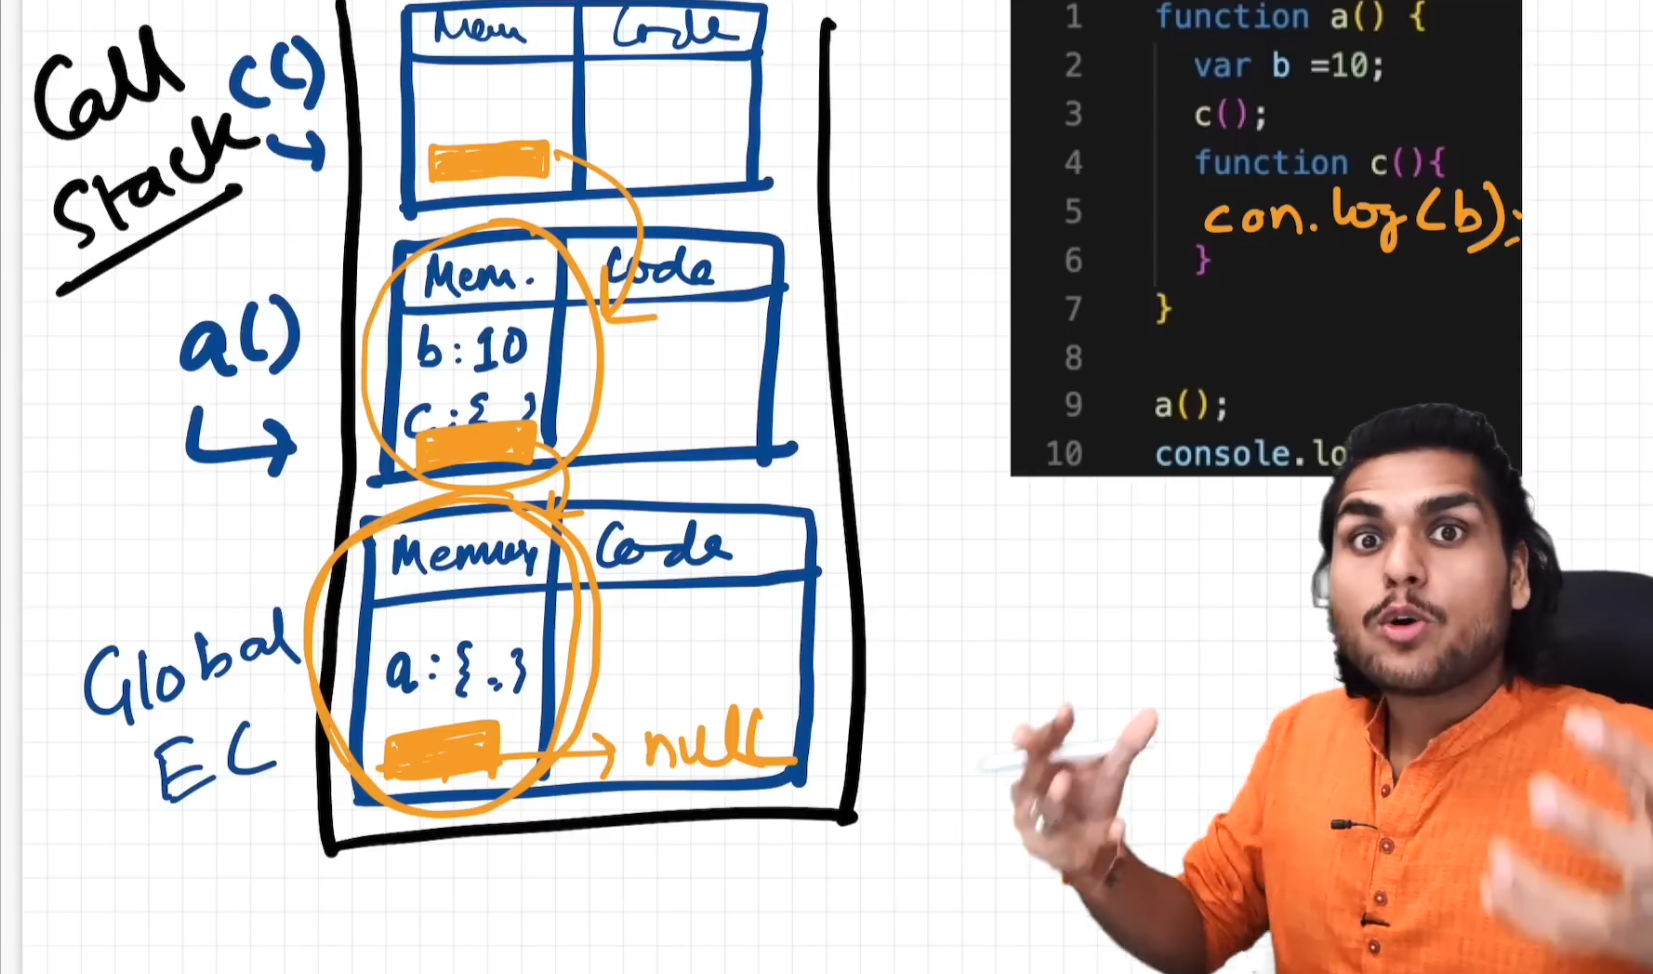 Call
Stack
c()
Mem
Code
a()
Mem.
Code
b:10
c:{
Global
EC
Memory
Code
a:{..}
null
1 function a() {
2 var b =10;
3 c();
4 function c(){
5 con.log(b);
6 }
7 }
8
9 a();
10 console.lo